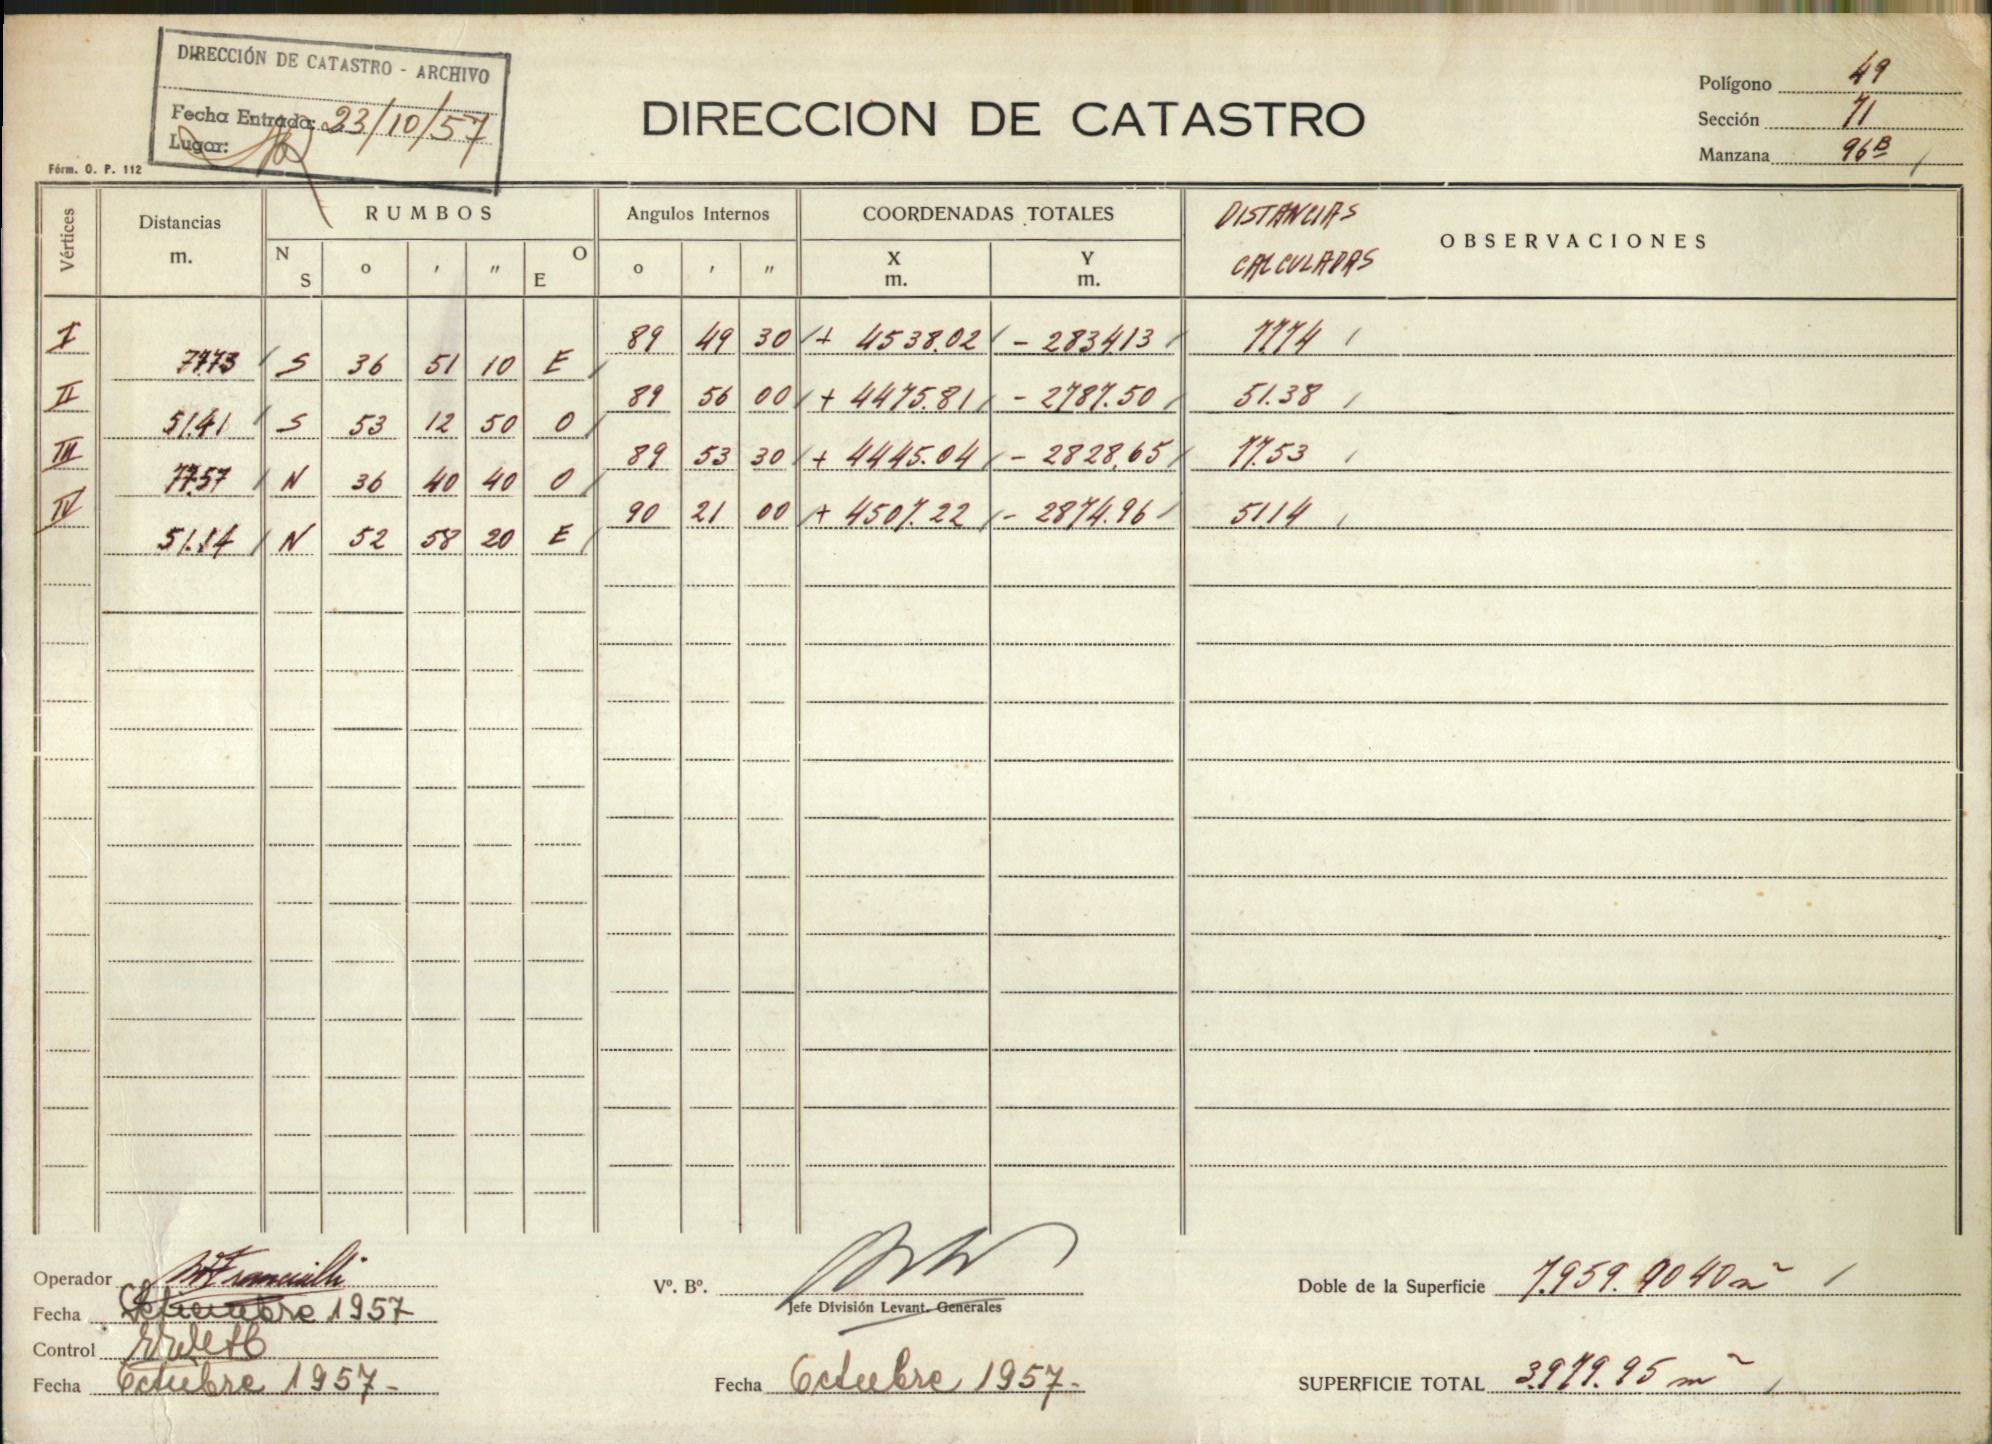 DIRECCIÓN DE CATASTRO - ARCHIVO
Fecha Entrada: 23/10/57
Lugar:
Fórm. O. P. 112
DIRECCION DE CATASTRO
Polígono 49
Sección 71
Manzana 96B
Vértices Distancias m. RUMBOS Angulos Internos COORDENADAS TOTALES DISTANCIAS CALCULADAS OBSERVACIONES
N S o ' " O E o ' " X m. Y m.
I 89 49 30 + 4538.02 - 2834.13 77.74
77.73 S 36 51 10 E
II 89 56 00 + 4475.81 - 2787.50 51.38
51.41 S 53 12 50 O
III 89 53 30 + 4445.04 - 2828.65 77.53
77.57 N 36 40 40 O
IV 90 21 00 + 4507.22 - 2874.96 51.14
51.14 N 52 58 20 E
Operador
Fecha Setiembre 1957
Control
Fecha Octubre 1957-
Vº. Bº.
Jefe División Levant. Generales
Fecha Octubre 1957-
Doble de la Superficie 7.959.9040 m²
SUPERFICIE TOTAL 3.979.95 m²